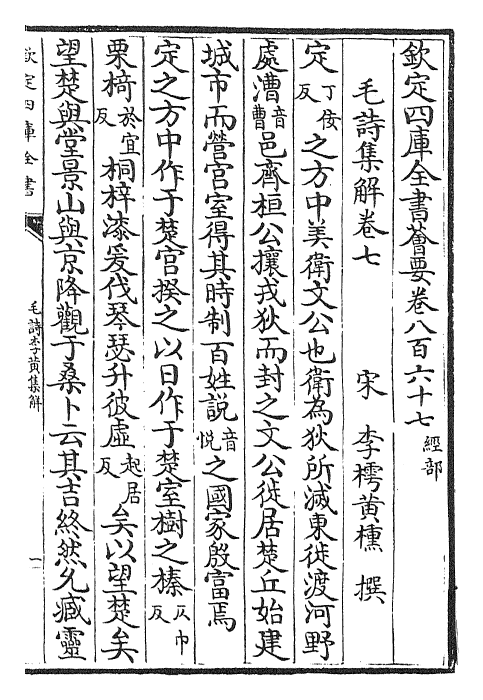 欽定四庫全書薈要卷八百六十七 經部
毛詩集解卷七 宋 李樗黃櫄 撰
定丁佞反之方中美衛文公也衛為狄所滅東徙渡河野
處漕音曹邑齊桓公攘戎狄而封之文公徙居楚丘始建
城市而營宮室得其時制百姓說音悅之國家殷富焉
定之方中作于楚宮揆之以日作于楚室樹之榛仄巾反
栗椅於宜反桐梓漆爰伐琴瑟升彼虛起居反矣以望楚矣
望楚與堂景山與京降觀于桑卜云其吉終然允臧靈
欽定四庫全書
毛詩李黃集解
一